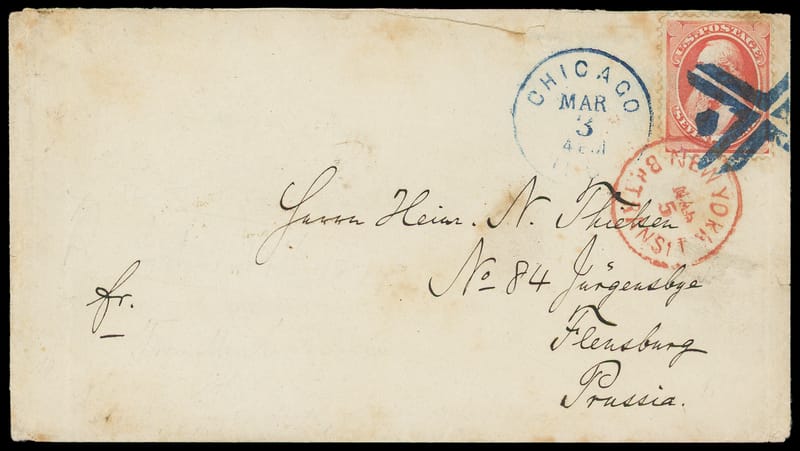 U.S. POSTAGE
CHICAGO
MAR
3
NEW YORK
MAR
5
BR TRANSIT
Herrn Heinr. N. Thielsen
No 84 Jürgensbye
fr.
Flensburg
Prussia.